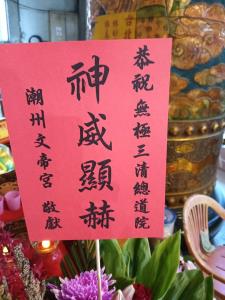 恭祝無極三清總道院
神威顯赫
潮州文帝宮 敬獻